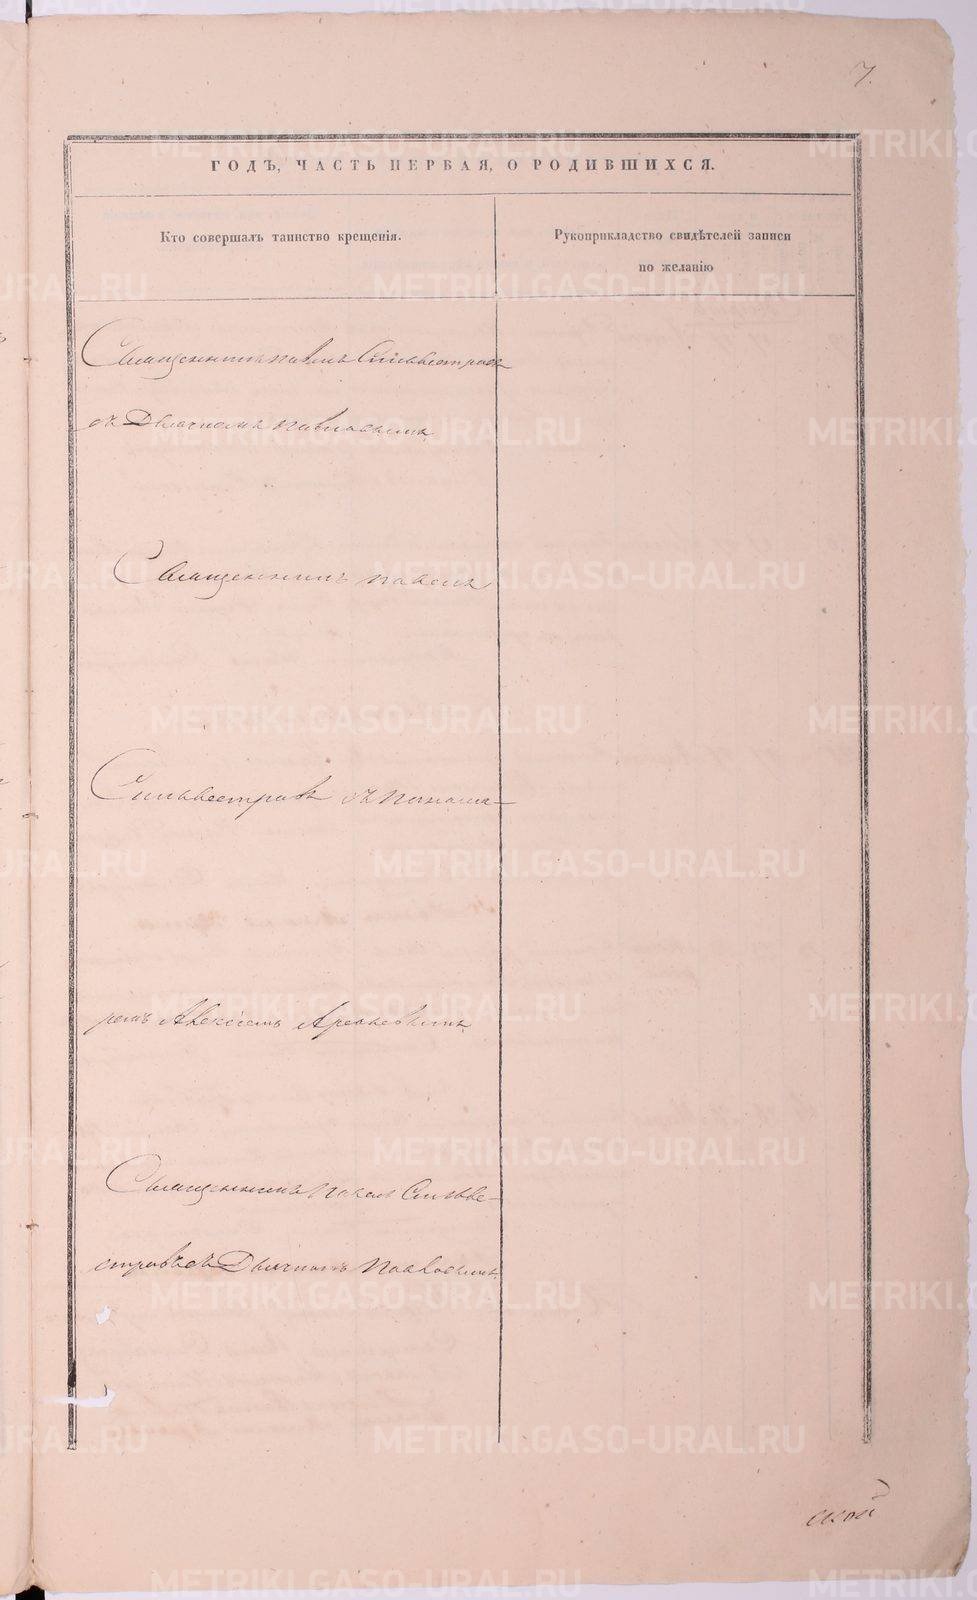 7.
ГОДЪ, ЧАСТЬ ПЕРВАЯ, О РОДИВШИХСЯ.
Кто совершалъ таинство крещенія.
Рукоприкладство свидѣтелей записи
по желанію
Священникъ Павелъ Сильвестровъ
съ Дьячкомъ Павловымъ
Священникъ Павелъ
Сильвестровъ съ Понома-
ремъ Алексіемъ
Священникъ Павелъ Сильве-
стровъ съ Дьячкомъ Павловымъ
METRIKI.GASO-URAL.RU